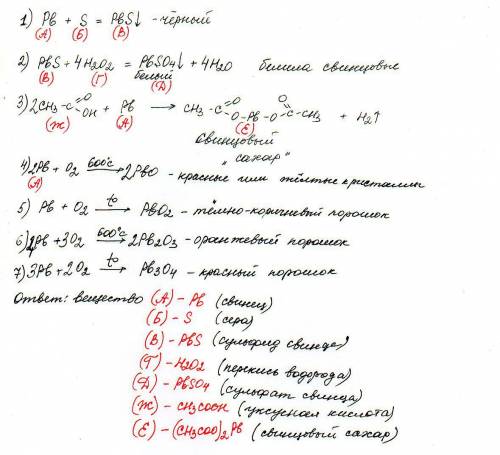 1) Pb + S = PbS↓ - чёрный
(А) (Б) (В)
2) PbS + 4H2O2 = PbSO4↓ + 4H2O белила свинцовые
(В) (Г) белый (Д)
3) 2CH3-C=O OH + Pb → CH3-C=O O-Pb-O C=O CH3 + H2↑
(Ж) (А) (Е)
свинцовый
"сахар"
4) 2Pb + O2 600°C → 2PbO - красные или жёлтые кристаллы
(А)
5) Pb + O2 t° → PbO2 - тёмно-коричневый порошок
6) 4Pb + 3O2 600°C → 2Pb2O3 - оранжевый порошок
7) 3Pb + 2O2 t° → Pb3O4 - красный порошок
Ответ: вещество (А) - Pb (свинец)
(Б) - S (сера)
(В) - PbS (сульфид свинца)
(Г) - H2O2 (перекись водорода)
(Д) - PbSO4 (сульфат свинца)
(Ж) - CH3COOH (уксусная кислота)
(Е) - (CH3COO)2Pb (свинцовый сахар)